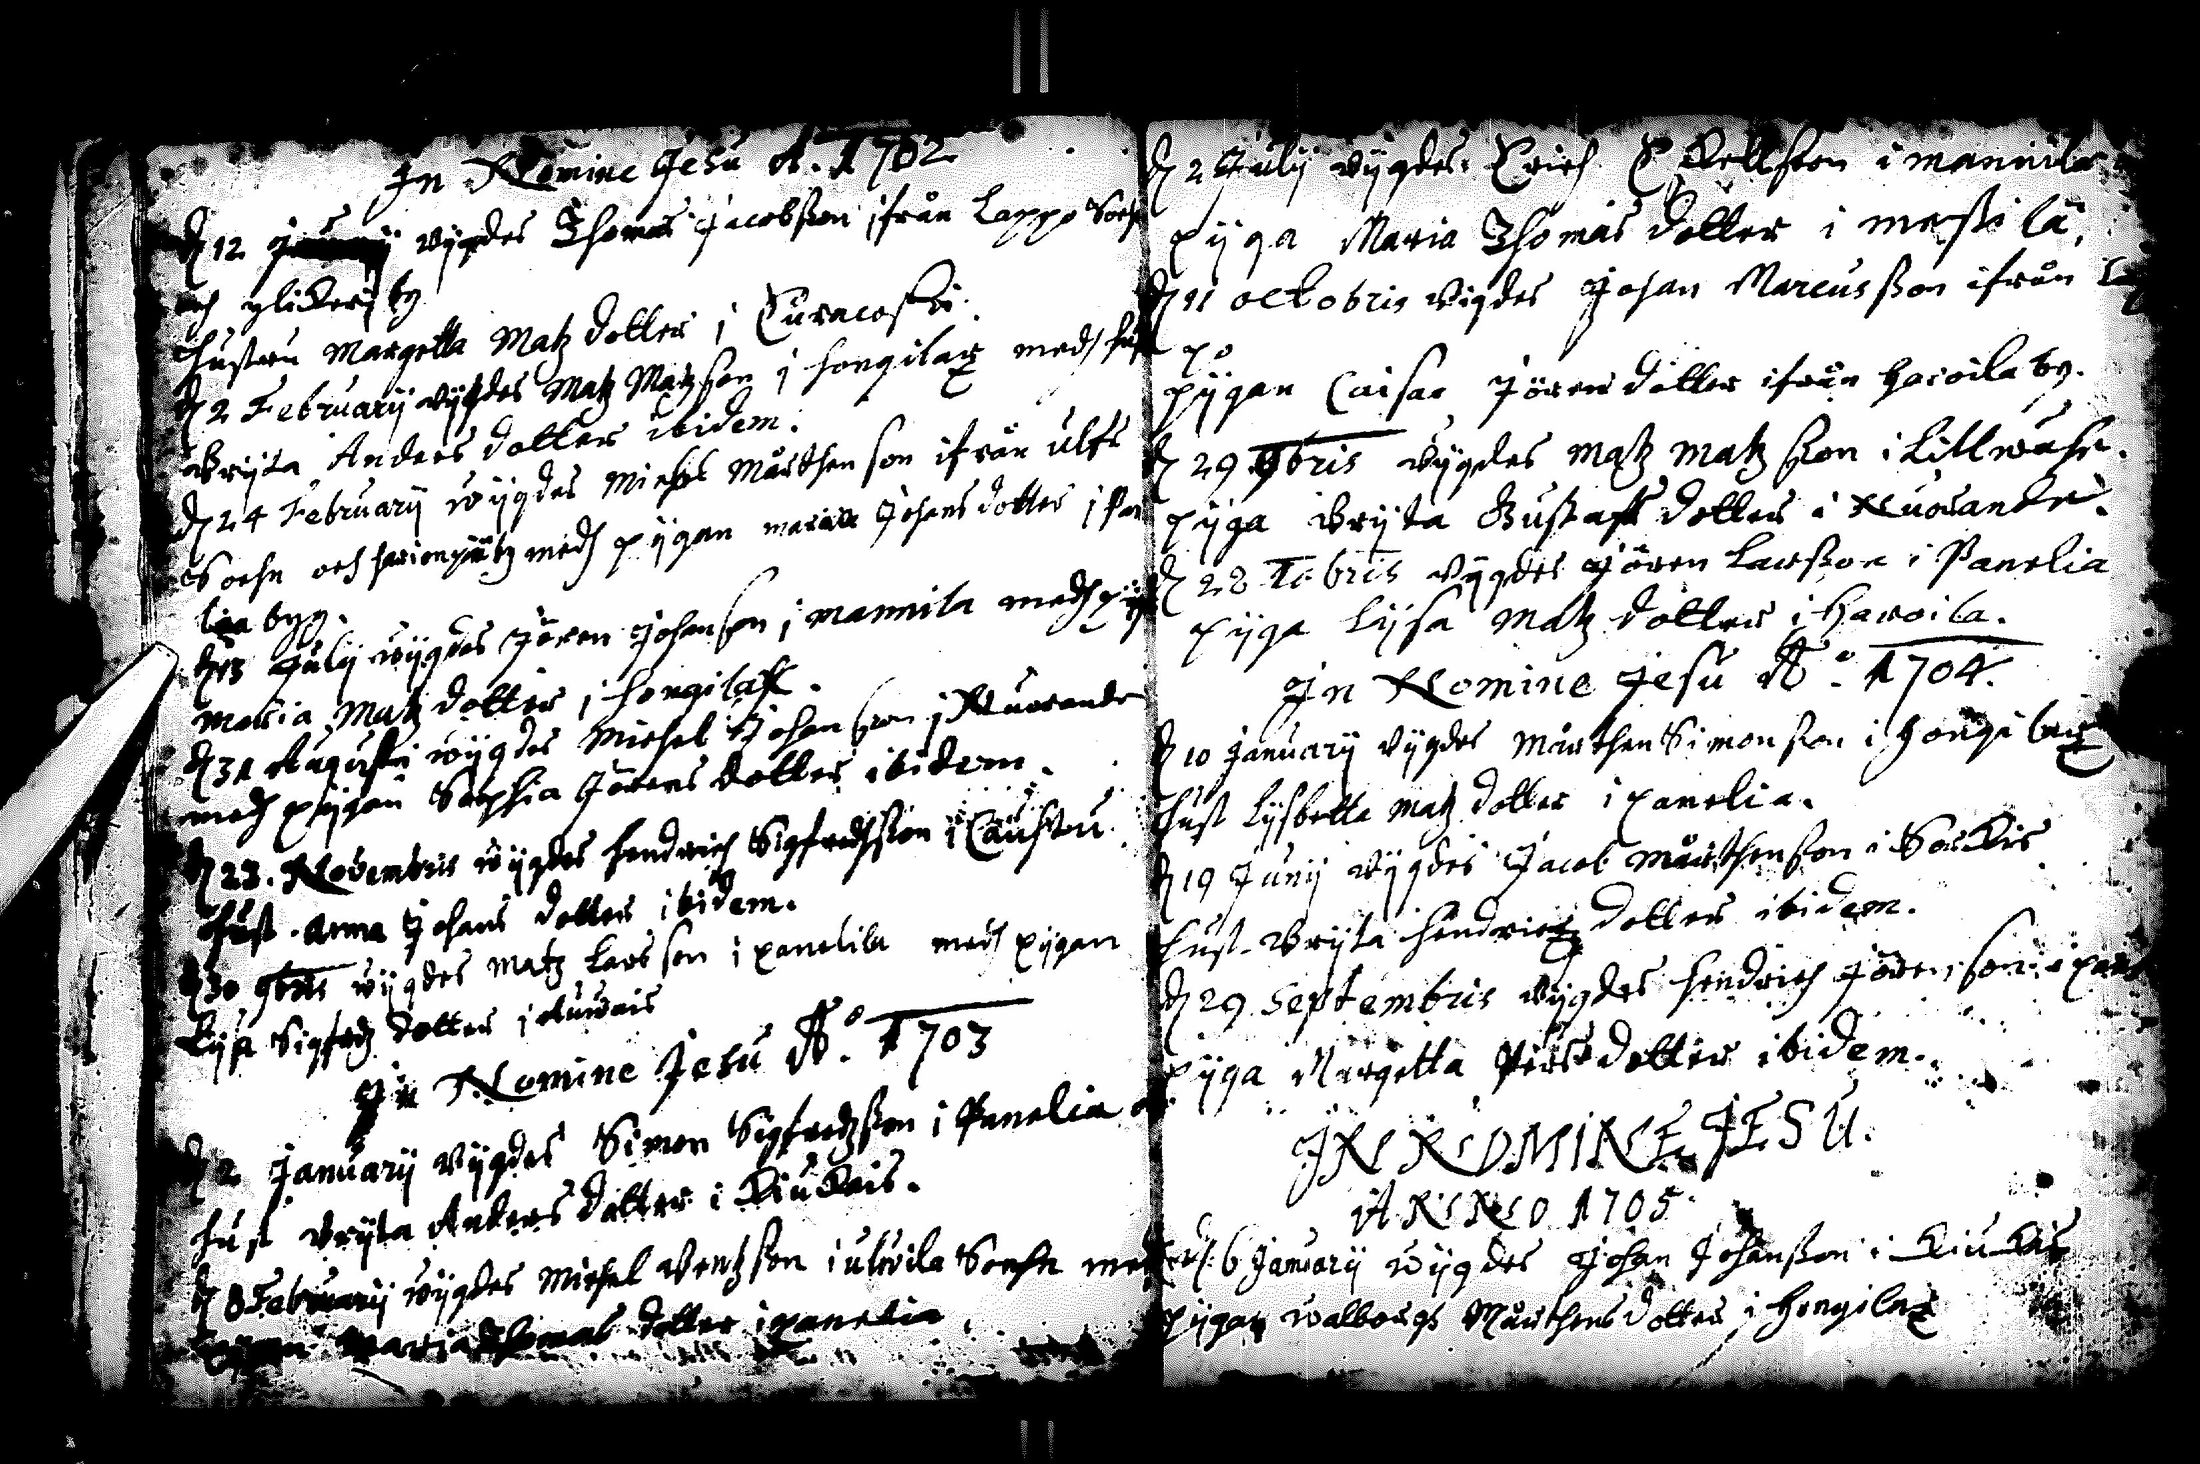 In Nomine Jesu A. 1702
d 12 wygdes Thomas Jacobsson ifrån Lappo Soch
och by
hustru Margetta Matz dotter j
d 2 Februarij wygdes Matz Matzson j hongilax medh hust
Bryta Anders dotter ibidem.
d 24 Februarij wijgdes Michel Mårthenson ifrån ulfs
Sochn och medh pijgan maria Johans dotter j Pan
lia by.
Julij wijgdes Jören Johanson j mannila medh pijg
maria Matz dotter j hongilax.
d 31 Augusti wijgdes Michel Johansson j Nuorande
medh pijgan Sophia Jörens dotter ibidem.
d 23. Novembris wijgdes hendrich Sigfredhsson i
hust. Anna Johans dotter ibidem.
d 30 9bris wijgdes Matz Larsson i panelila medh pijgan
Lijsa Sigfredz dotter j
In Nomine Jesu Ao. 1703
d 2 Januarij wijgdes Simon Sigfredzson j Panelia
hust Bryta Anders dotter i Kiukais.
d 8 Februarij wijgdes Michel Bentzson i ulwila Sochn med
Maria Thomas dotter i panelia.
d 2 Julij wijgdes Erich E Kellsson i mannila
pijga Maria Thomas dotter i
d 11 octobris wigdes Johan Marcusson ifrån Lap
po
pijgan Caisa Jörens dotter ifrån haroila by.
d 29 9bris wijgdes Matz Matzson i
pijga Bryta Gustafs dotter i Nuorande.
d 28 Xbris wijgdes Jören Larsson i Panelia
pijga Lijsa Matz dotter i haroila.
In Nomine Jesu Ao. 1704.
d 10 Januarij wijgdes Mårthen Simonson i hongilax
hust Lijsbetta Matz dotter i panelia.
d 19 Junij wijgdes Jacob Mårthenson i
hust Bryta hendrichz dotter ibidem.
d 29 Septembris wijgdes hendrich Jörenson i pan
pijga Margetta Pers dotter ibidem.
IN NOMINE JESU.
ANNO 1705
d. 6 Januarij wijgdes Johan Johansson i Kiukais
pijgan walborgh Mårthens dotter j hongilax